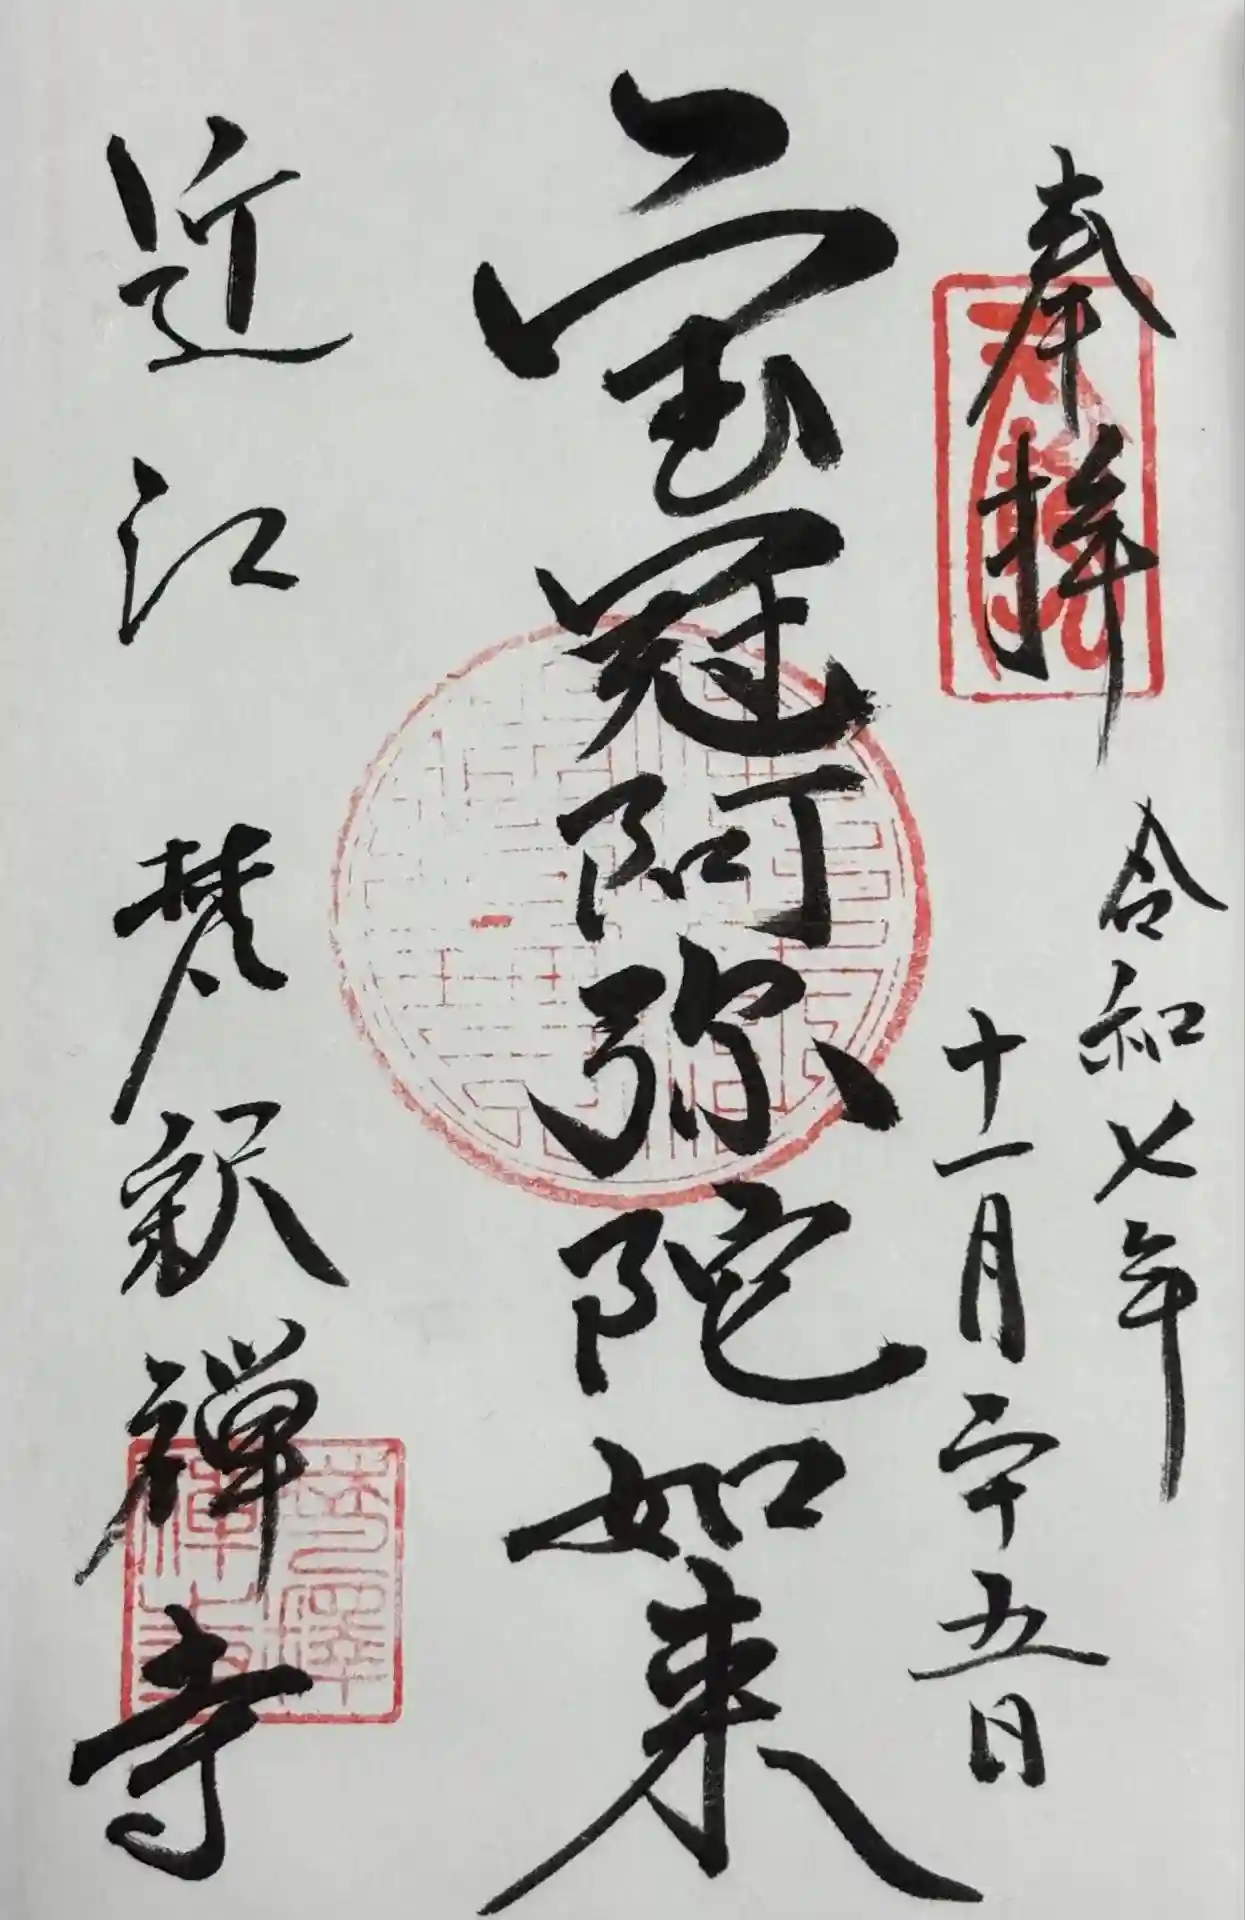 奉拝
令和七年
十一月二十五日
宝冠阿弥陀如来
近江 梵釈禅寺
梵釋禅寺